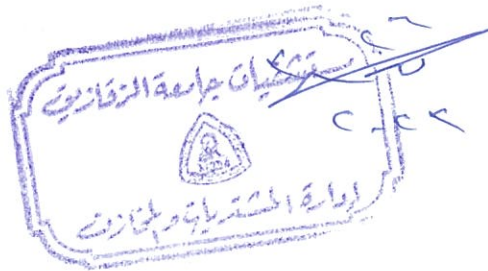 مستشفيات جامعة الزقازيق
إدارة المشتريات والمخازن
٢٠٢٢